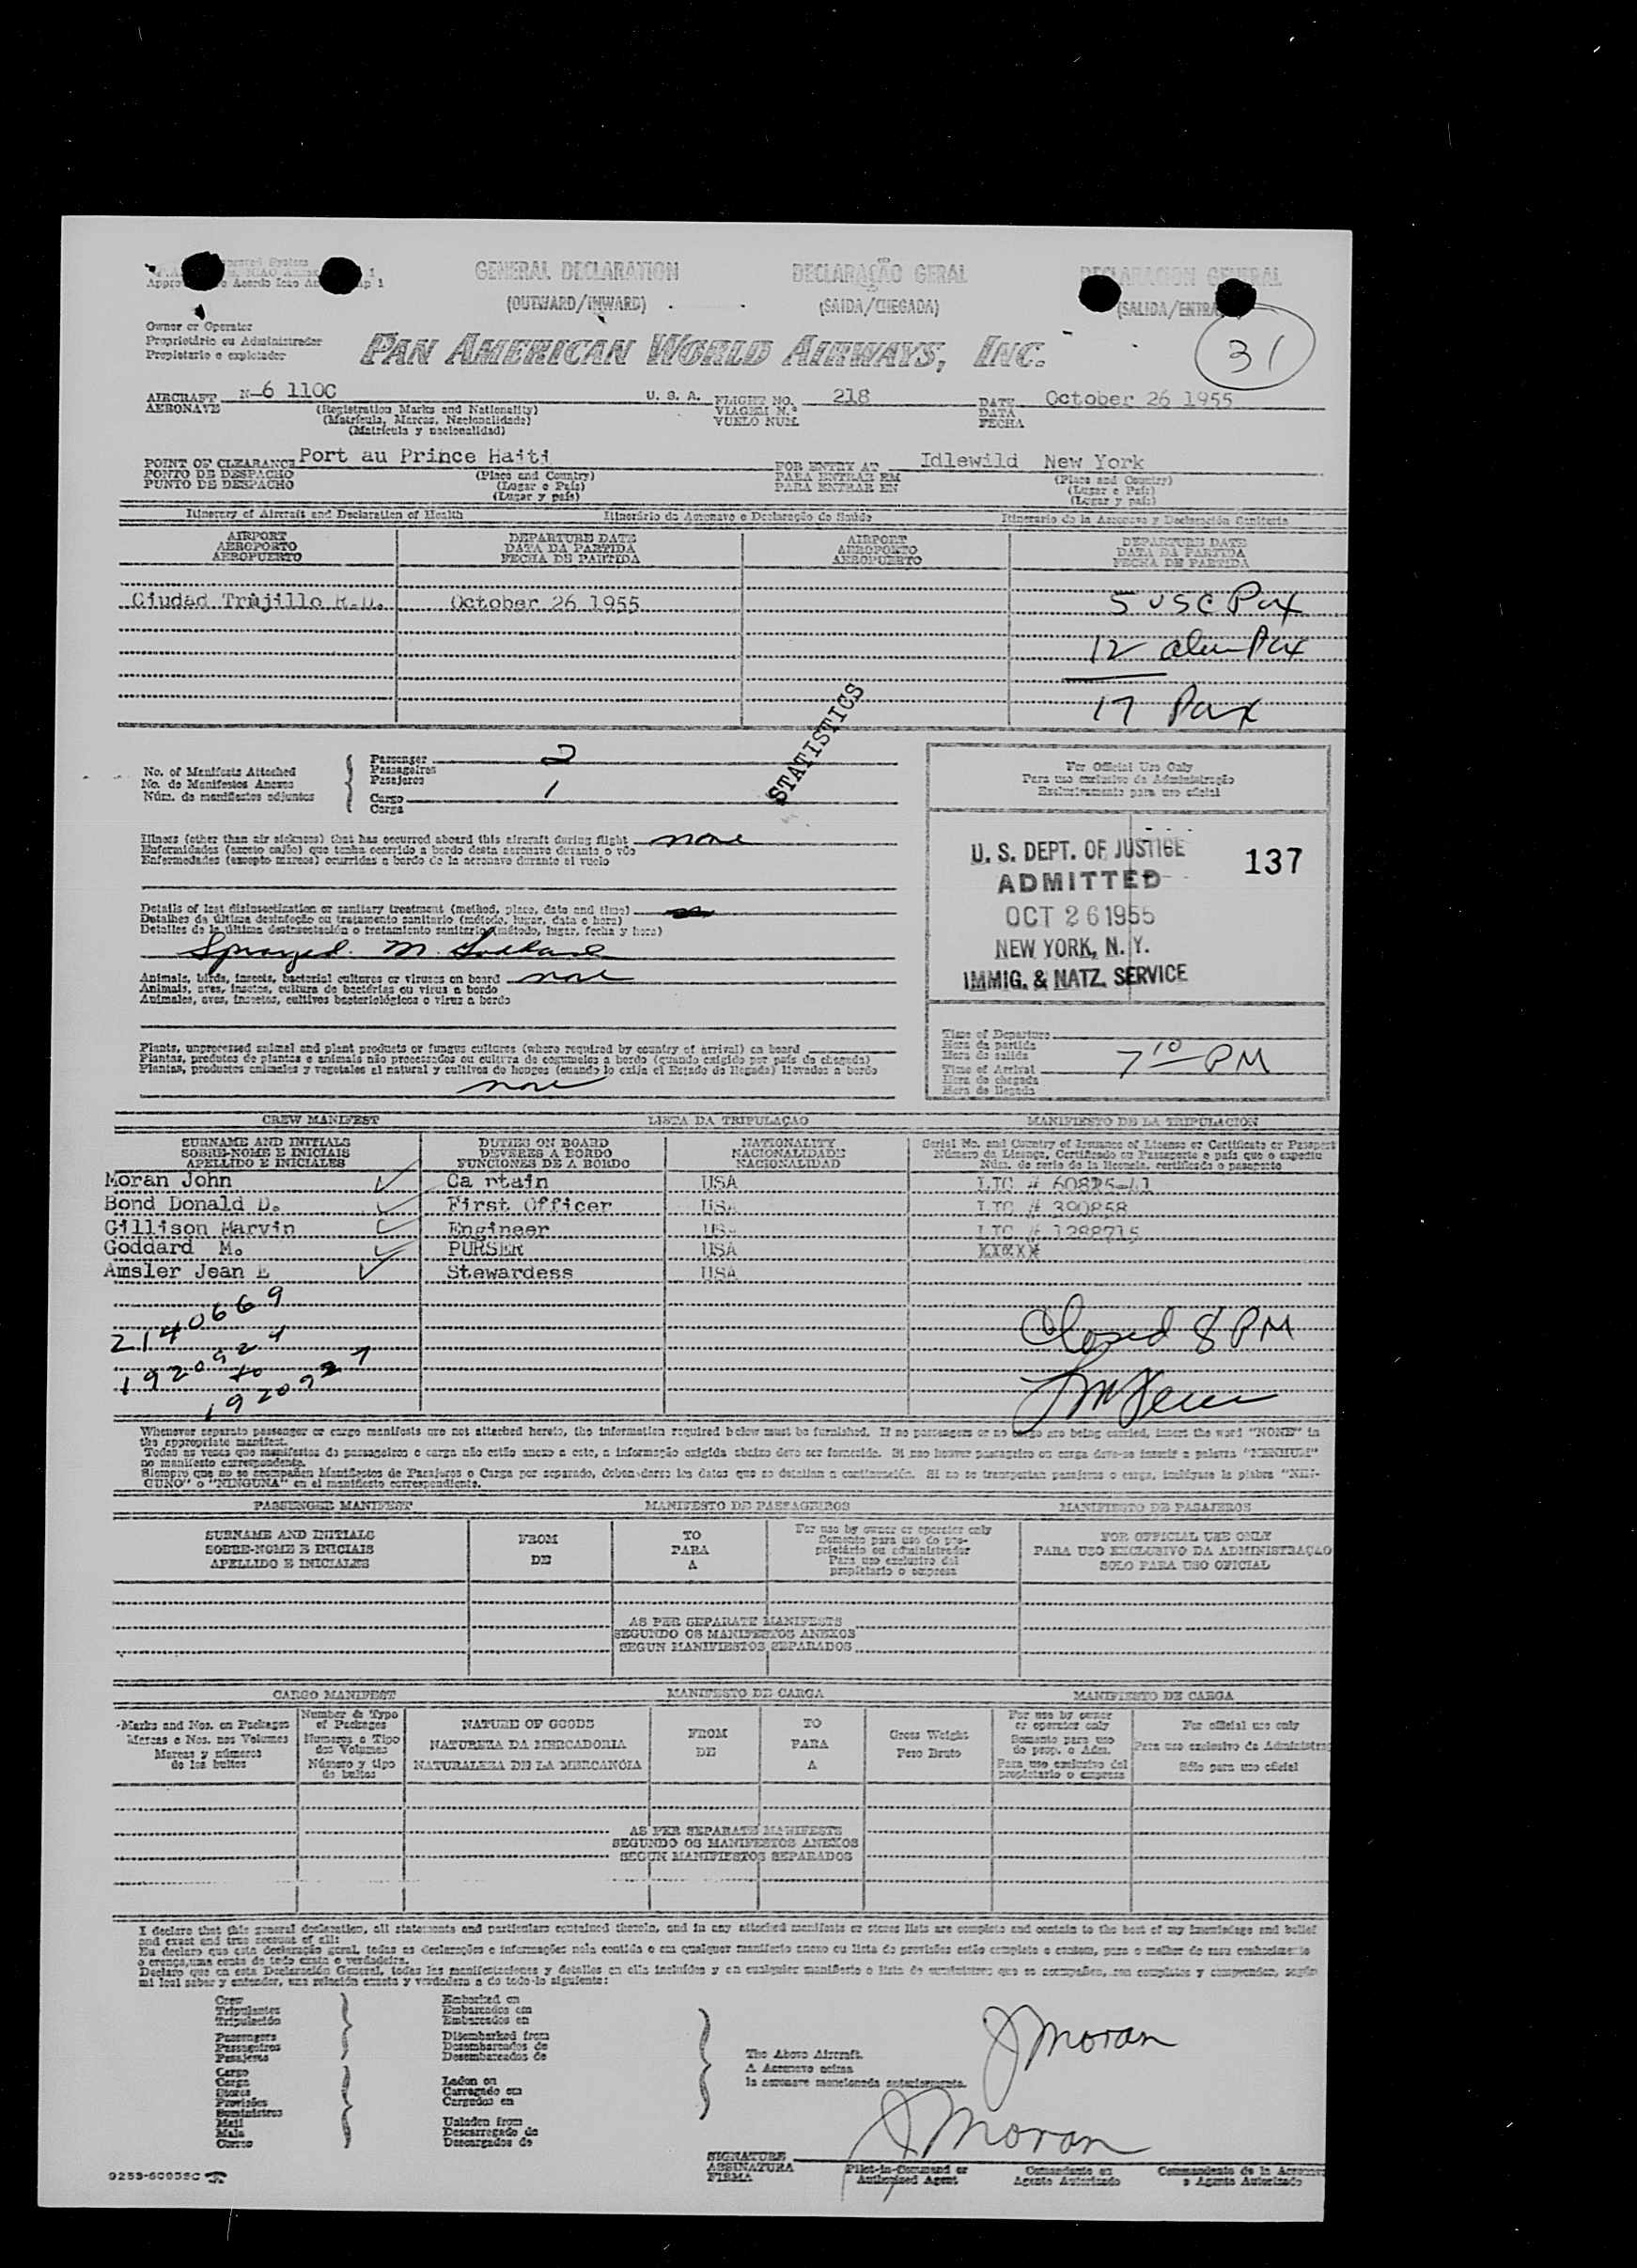 GENERAL DECLARATION
(OUTWARD/INWARD)
DECLARAÇÃO GERAL
(SAIDA/CHEGADA)
DECLARACION GENERAL
(SALIDA/ENTRA
31
Owner or Operator
Proprietário ou Administrador
Propietario o explotador
PAN AMERICAN WORLD AIRWAYS, INC.
AIRCRAFT N-6 110C U. S. A. FLIGHT NO. 218 DATE October 26 1955
AERONAVE (Registration Marks and Nationality) VIAGEM N.º DATA
(Matrícula, Marcas, Nacionalidade) VUELO NUM. FECHA
(Matrícula y nacionalidad)
POINT OF CLEARANCE Port au Prince Haiti FOR ENTRY AT Idlewild New York
PONTO DE DESPACHO (Place and Country) PARA ENTRAR EM (Place and Country)
PUNTO DE DESPACHO (Lugar e País) PARA ENTRAR EN (Lugar e País)
(Lugar y país) (Lugar y país)
Itinerary of Aircraft and Declaration of Health Itinerário da Aeronave e Declaração de Saúde Itinerario de la Aeronave y Declaración Sanitaria
AIRPORT DEPARTURE DATE AIRPORT DEPARTURE DATE
AEROPORTO DATA DA PARTIDA AEROPORTO DATA DA PARTIDA
AEROPUERTO FECHA DE PARTIDA AEROPUERTO FECHA DE PARTIDA
Ciudad Trujillo R.D. October 26 1955 5 USC Pax
12 alien Pax
17 Pax
STATISTICS
No. of Manifests Attached
No. de Manifestos Anexos
Núm. de manifiestos adjuntos
Passenger 2
Passageiros
Pasajeros
Cargo 1
Carga
For Official Use Only
Para uso exclusivo da Administração
Exclusivamente para uso oficial
Illness (other than air sickness) that has occurred aboard this aircraft during flight none
Enfermidades (exceto enjôo) que tenha ocorrido a bordo desta aeronave durante o vôo
Enfermedades (excepto mareos) ocurridas a bordo de la aeronave durante el vuelo
U. S. DEPT. OF JUSTICE 137
ADMITTED
OCT 26 1955
NEW YORK, N. Y.
IMMIG. & NATZ. SERVICE
Details of last disinsectization or sanitary treatment (method, place, date and time)
Detalhes da última desinfeção ou tratamento sanitario (método, lugar, data e hora)
Detalles de la última desinsectación o tratamiento sanitario (método, lugar, fecha y hora)
Sprayed. M. Goddard
Animals, birds, insects, bacterial cultures or viruses on board none
Animais, aves, insetos, cultura de bactérias ou virus a bordo
Animales, aves, insectos, cultivos bacteriológicos o virus a bordo
Plants, unprocessed animal and plant products or fungus cultures (where required by country of arrival) on board
Plantas, produtos de plantas e animais não processados ou cultura de cogumelos a bordo (quando exigido por país de chegada)
Plantas, productos animales y vegetales al natural y cultivos de hongos (cuando lo exija el Estado de llegada) llevados a bordo
none
Time of Departure
Hora da partida
Hora de salida
Time of Arrival 7 10 PM
Hora de chegada
Hora de llegada
CREW MANIFEST LISTA DA TRIPULAÇAO MANIFIESTO DE LA TRIPULACION
SURNAME AND INITIALS DUTIES ON BOARD NATIONALITY Serial No. and Country of Issuance of License or Certificate or Passport
SOBRE-NOME E INICIAIS DEVERES A BORDO NACIONALIDADE Número da Licença, Certificado ou Passaporte e país que o expediu
APELLIDO E INICIALES FUNCIONES DE A BORDO NACIONALIDAD Núm. de serie de la licencia, certificado o pasaporte
Moran John Ca rtain USA LIC # 60815-41
Bond Donald D. First Officer USA LIC # 390858
Gillison Marvin Engineer US LIC # 1288715
Goddard M. PURSER USA XXXXX
Amsler Jean E Stewardess USA
2140669
1920924
to
1920927
Closed 8 PM
Whenever separate passenger or cargo manifests are not attached hereto, the information required below must be furnished. If no passengers or no cargo are being carried, insert the word "NONE" in
the appropriate manifest.
Todas as vezes que manifestos de passageiros e carga não estão anexo a este, a informação exigida abaixo deve ser fornecida. Si não houver passageiro ou carga deve-se inserir a palavra "NENHUM"
no manifesto correspondente.
Siempre que no se acompañen Manifiestos de Pasajeros o Carga por separado, deben darse los datos que se detallan a continuación. Si no se transportan pasajeros o carga, inclúyase la plabra "NIN-
GUNO" o "NINGUNA" en el manifiesto correspondiente.
PASSENGER MANIFEST MANIFESTO DE PASSAGEIROS MANIFIESTO DE PASAJEROS
SURNAME AND INITIALS FROM TO For use by owner or operator only FOR OFFICIAL USE ONLY
SOBRE-NOME E INICIAIS DE PARA Somente para uso do pro- PARA USO EXCLUSIVO DA ADMINISTRAÇAO
APELLIDO E INICIALES A prietário ou administrador SOLO PARA USO OFICIAL
Para uso exclusivo del
propietario o empresa
AS PER SEPARATE MANIFESTS
SEGUNDO OS MANIFESTOS ANEXOS
SEGUN MANIFIESTOS SEPARADOS
CARGO MANIFEST MANIFESTO DE CARGA MANIFIESTO DE CARGA
Marks and Nos. on Packages Number & Type of Packages NATURE OF GOODS FROM TO Gross Weight For use by owner or operator only For official use only
Marcas e Nos. nos Volumes Numeros e Tipo dos Volumes NATUREZA DA MERCADORIA DE PARA Peso Bruto Somente para uso do prop. o Adm. Para uso exclusivo da Administraç
Marcas y números de los bultos Número y tipo de bultos NATURALEZA DE LA MERCANCÍA A Para uso exclusivo del propietario o empresa Sólo para uso oficial
AS PER SEPARATE MANIFESTS
SEGUNDO OS MANIFESTOS ANEXOS
SEGUN MANIFIESTOS SEPARADOS
I declare that this general declaration, all statements and particulars contained therein, and in any attached manifests or stores lists are complete and contain to the best of my knowledge and belief
and exact and true account of all:
Eu declaro que esta declaração geral, todas as declarações e informações nela contida e em qualquer manifesto anexo ou lista de provisões estão completo e contem, para o melhor de meu conhecimento
e crença, uma conta de todo exata e verdadeira.
Declaro que en esta Declaración General, todas las manifestaciones y detalles en ella incluídos y en cualquier manifiesto o lista de suministros que se acompañen, son completos y comprenden, según
mi leal saber y entender, una relación exacta y verdadera a de todo lo siguiente:
Crew
Tripulantes
Tripulación
Passengers
Passageiros
Pasajeros
Cargo
Carga
Stores
Provisões
Suministros
Mail
Mala
Correo
Embarked on
Embarcados em
Embarcados en
Disembarked from
Desembarcados de
Desembarcados de
Laden on
Carregado em
Cargados en
Unladen from
Descarregado de
Descargados de
The Above Aircraft.
A Aeronave acima
la aeronave mencionada anteriormente.
J Moran
J Moran
SIGNATURE
ASSINATURA
FIRMA
Pilot-in-Command or Authorized Agent
Comandante ou Agente Autorizado
Commandante de la Aeronave o Agente Autorizado
9253-60935C